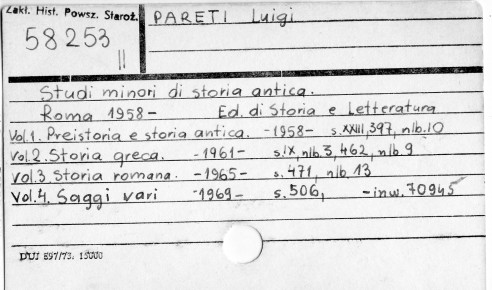 Zakł. Hist. Powsz. Staroż.
58253
II
PARETI Luigi
Studi minori di storia antica.
Roma 1958- Ed. di Storia e Letteratura
Vol.1. Preistoria e storia antica. -1958- s.XXIII,397, nlb.10
Vol.2. Storia greca. -1961- s.IX, nlb.3, 462, nlb.9
Vol.3 Storia romana. -1965- s.471, nlb.13
Vol.4. Saggi vari -1969- s.506, -inw.70945
DUJ 897/73. 15000